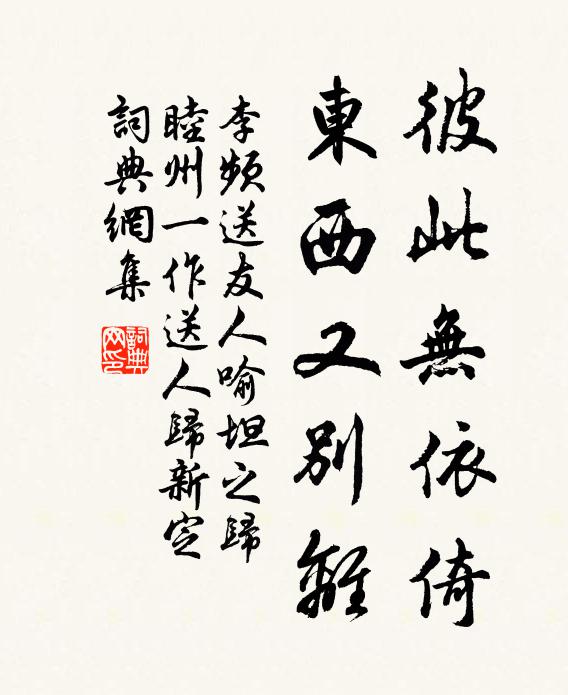 彼此無依倚
東西又別離
李頻送友人喻坦之歸
睦州一作送人歸新定
詞典網集
詞典
網印